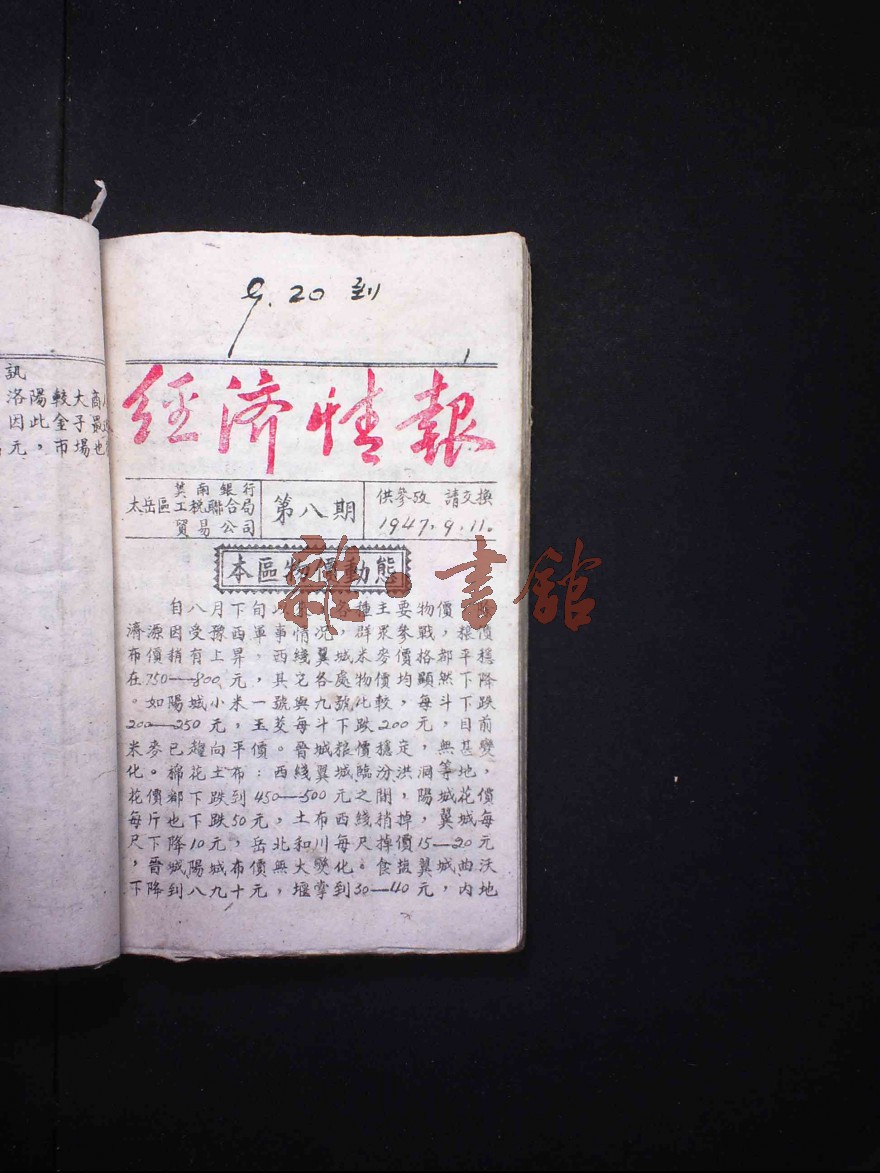 9.20 到
訊
洛陽較大商
因此金子最
元，市場也
經濟情報
冀南銀行
太岳區工税聯合局
貿易公司
第八期
供參攷 請交換
1947.9.11.
本區物價動態
雜·書館
自八月下旬以來，各種主要物價
濟源因受豫西軍事情况，群眾參戰，粮價
布價稍有上昇，西綫翼城米麥價格都平穩
在750—800元，其它各處物價均顯然下降
。如陽城小米一號與九號比較，每斗下跌
200—250元，玉茭每斗下跌200元，目前
米麥已趨向平價。晋城粮價穩定，無甚變
化。棉花土布：西綫翼城臨汾洪洞等地，
花價都下跌到450—500元之間，陽城花價
每斤也下跌50元，土布西綫稍掉，翼城每
尺下降10元，岳北和川每尺掉價15—20元
，晋城陽城布價無大變化。食盐翼城曲沃
下降到八九十元，堰掌到30—40元，内地